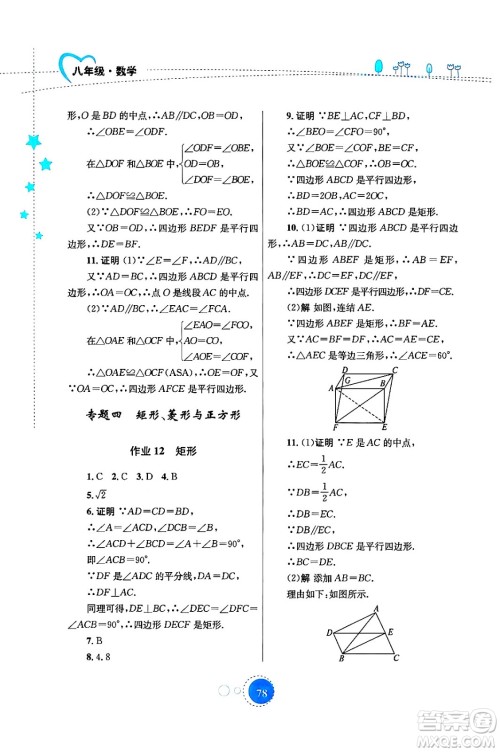 八年级·数学
形，O 是 BD 的中点，∴AB//DC，OB=OD，
∴∠OBE=∠ODF.
在△DOF 和△BOE 中
∠ODF=∠OBE，
OD=OB，
∠DOF=∠BOE，
∴△DOF≌△BOE.
(2)∵△DOF≌△BOE，∴FO=EO.
又∵OB=OD，∴四边形 BEDF 是平行四边形，
∴DE=BF.
11. 证明 (1)∵AE⊥AD，∴∠EAD=90°，
又∵AO=DO，∴△AOD 是等腰三角形.
(2)∵AD//BC，∴∠EAC=∠FCA.
在△OAE 和△OCF 中
∠EAO=∠FCO，
AO=CO，
∠AOE=∠COF，
∴△OAE≌△OCF(ASA)，∴AE=CF.
又∵OA=OC，∴四边形 AFCE 是平行四边形.
专题四 矩形、菱形与正方形
作业 12 矩形
1. C 2. C 3. D 4. B
5. √2
6. 证明 ∵AD=CD=DB，
∴∠A=∠ACD，∠DCB=∠B.
∴∠A+∠B=∠ACD+∠DCB=90°.
即∠ACB=90°.
∵DF 是∠ADC 的平分线，∴DF⊥AC.
∴∠DFC=90°.
同理可得，∠DEC=90°，∴∠DFC=∠DEC=
∠FCE=90°.∴四边形 DECF 是矩形.
7. B
8. 4，8
9. 证明 ∵BE⊥AC，CF⊥BD，
∴∠BEO=∠CFO=90°.
又∵∠BOE=∠COF，BE=CF，
∴△BOE≌△COF，∴OB=OC.
∵四边形 ABCD 是平行四边形，
∴BD=2OB，AC=2OC.
∴BD=AC.
又∵四边形 ABCD 是平行四边形，
∴四边形 ABCD 是矩形.
10. (1)证明 ∵四边形 ABCD 是平行四边形，
∴DC//AB，DC=AB.
又∵四边形 ABEF 是矩形，∴AB//EF，AB=EF.
∴DC//EF，DC=EF.
∴四边形 DCEF 是平行四边形.
(2)解 如图，连结 AE.
∵四边形 ABEF 是矩形，∴BF=AE.
又∵BF=AC=CE，∴AE=AC=CE.
∴△AEC 是等边三角形，∴∠ACE=60°.
D
C
G
A
B
F
E
11. (1)证明 ∵E 是 AC 的中点，
∴EC=1/2 AC.
∵DB=1/2 AC，
∴DB=EC.
又∵DB//EC，
∴四边形 DBCE 是平行四边形.
(2)解 添加 AB=BC.
理由如下：如图.
A
D
E
B
C
78
答案圈
MXQE.COM